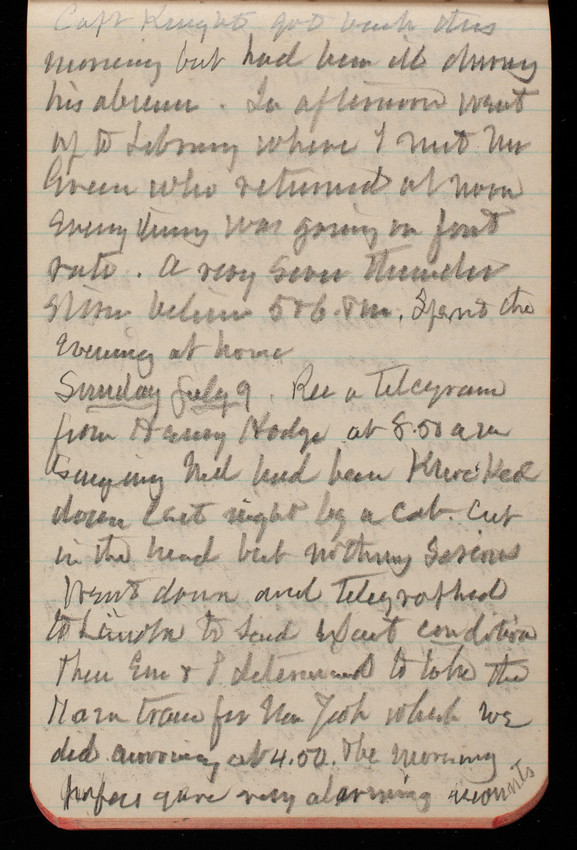 Capt Knight got back this
morning but had been ill during
his absence. In afternoon went
up to Library where I met Mr
Green who returned at noon
Every thing was going on first
rate. A very severe thunder
storm between 5 & 6 P.m. Spent the
Evening at home
Sunday July 9. Rec a Telegram
from Harvey Hodge at 8.50 am
saying Ned had been Knocked
down last night by a cab. Cut
in the head but nothing serious
Went down and telegraphed
to Lincoln to send exact condition
Then Em & I determined to take the
11 am train for New York which we
did arriving at 4.50. The morning
papers gave very alarming accounts